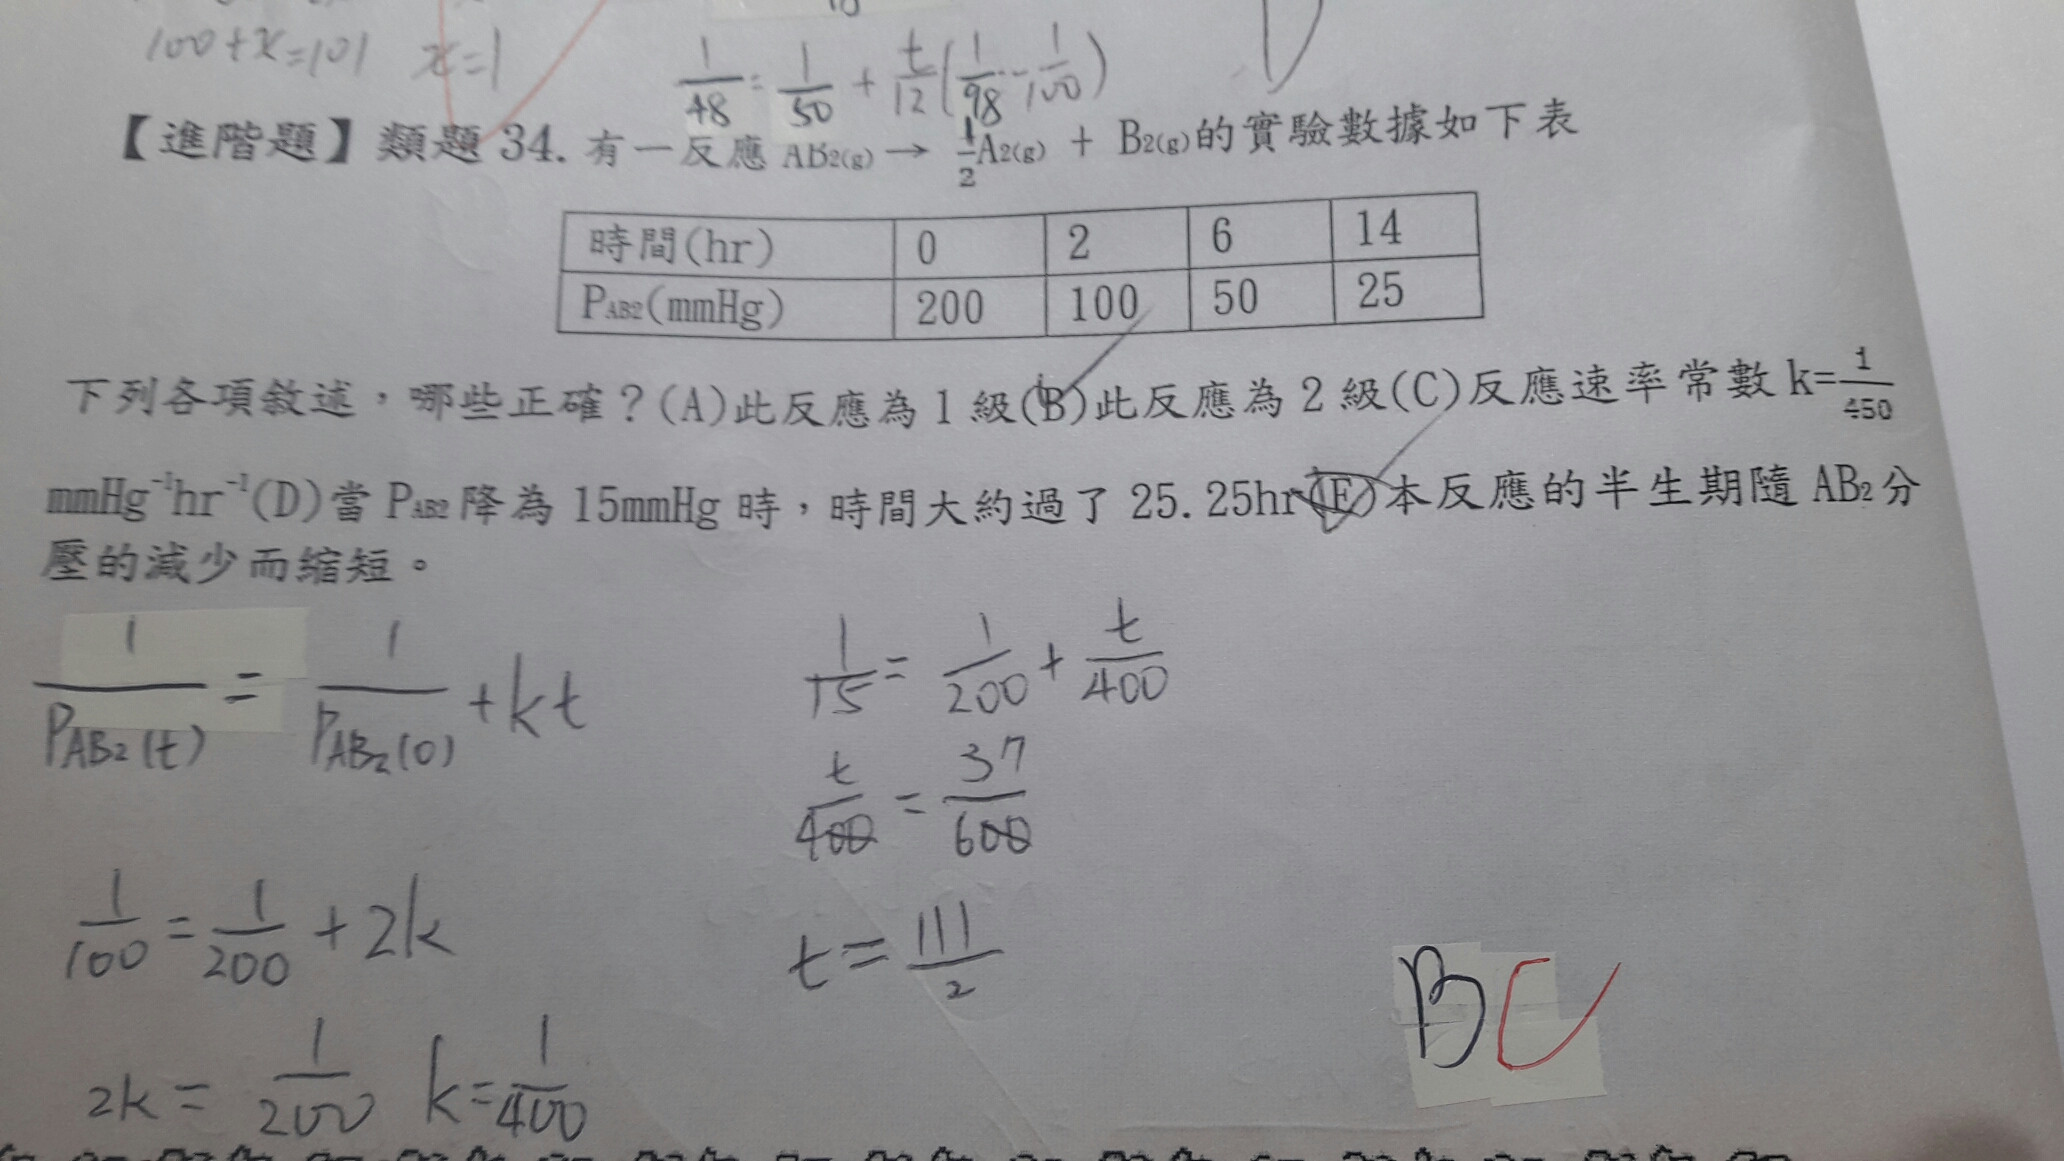 100+x=101 x=1
1/48 = 1/50 + t/12 (1/98 - 1/100)
【進階題】類題 34. 有一反應 AB2(g) → 1/2A2(g) + B2(g)的實驗數據如下表
時間(hr) 0 2 6 14
PAB2(mmHg) 200 100 50 25
下列各項敘述，哪些正確？(A)此反應為 1 級(B)此反應為 2 級(C)反應速率常數 k=1/450
mmHg⁻¹hr⁻¹(D)當 PAB2 降為 15mmHg 時，時間大約過了 25.25hr(E)本反應的半生期隨 AB2 分
壓的減少而縮短。
1/PAB2(t) = 1/PAB2(0) + kt
1/100 = 1/200 + 2k
2k = 1/200 k = 1/400
1/15 = 1/200 + t/400
t/400 = 37/600
t = 111/2
BC